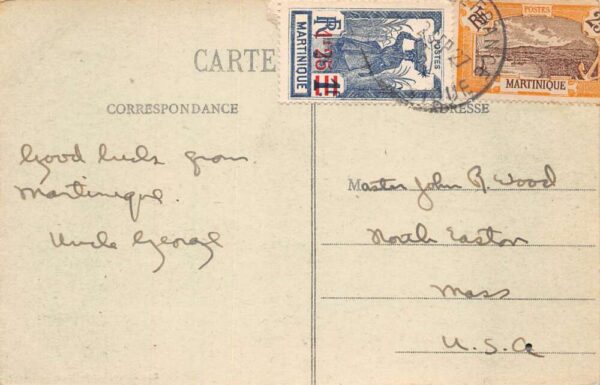 CARTE
RF
POSTES
MARTINIQUE
1f25
1f
RF
POSTES
25
MARTINIQUE
CORRESPONDANCE
ADRESSE
Good luck from
Martinique.
Uncle George
Master John R. Wood
North Easton
Mass
U.S.A